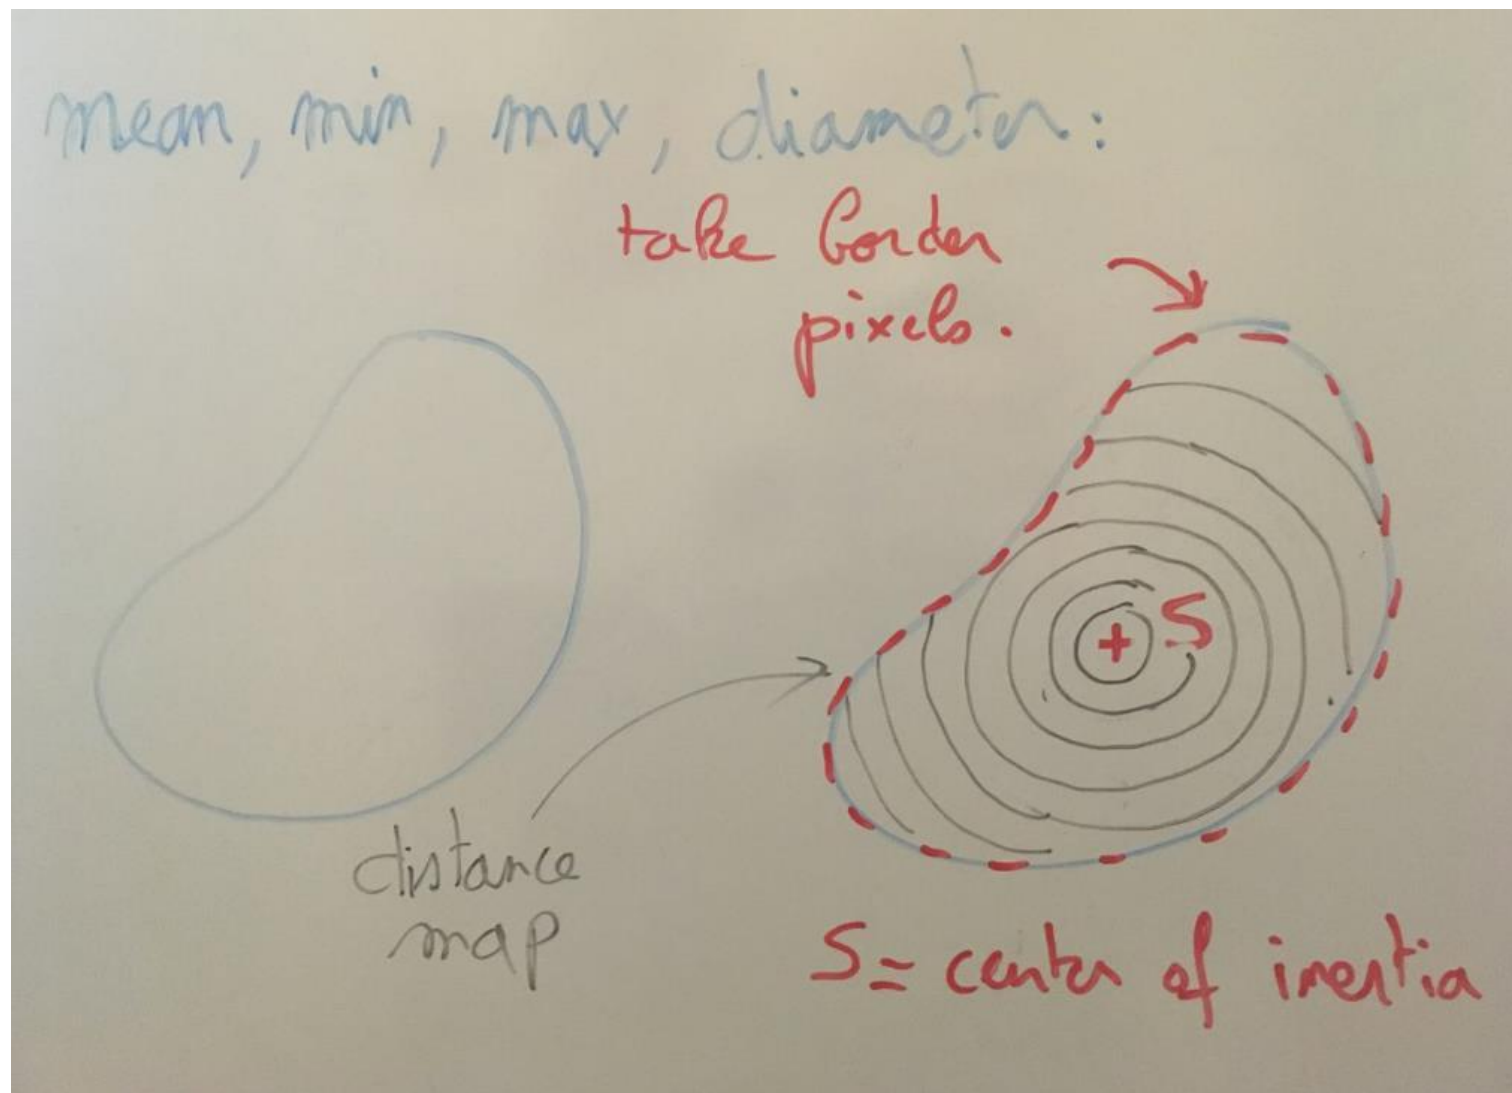 mean, min, max, diameter:
take border
pixels.
S
distance
map
S = center of inertia